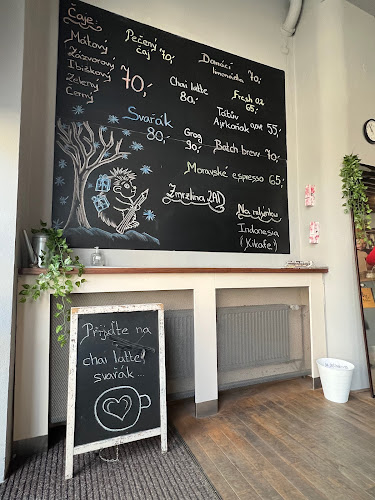 Čaje:
Mátový
Zázvorový
Ibiškový
Zelený
Černý
70,-
Pečený
čaj 70,-
Domácí
limonáda 70,-
Chai latte
80,-
Fresh oz
65,-
Svařák
80,-
Grog
90,-
Tátův
Ajrkoňak 55,-
Batch brew 70,-
Moravské espresso 65,-
Zmrzlina ZAD
Na mlýnku
Indonesia
(Kikafe)
Přijďte na
chai latte,
svařák...